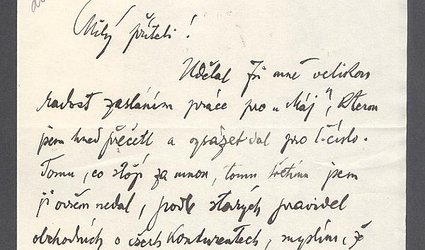 Milý příteli!
Udělal jsi mně velikou
radost zasláním práce pro „Máj", kterou
jsem hned přečetl a pro 1. číslo.
Tomu, co stojí za mnou, tomu třetímu jsem
ji ovšem nedal, podle starých pravidel
obchodních o všech konkurentech, myslím, že